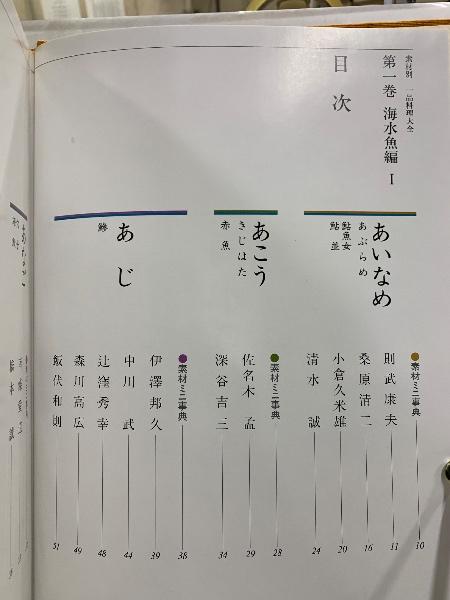 素材別 一品料理大全
第一巻 海水魚編 I
目次
あいなめ
あぶらめ
鮎魚女
鮎並
●素材ミニ事典 10
則武康夫 11
桑原清二 16
小倉久米雄 20
清水誠 24
あこう
きじはた
赤魚
●素材ミニ事典 28
佐名木孟 29
深谷吉三 34
あじ
鰺
●素材ミニ事典 38
伊澤邦久 39
中川武 44
辻窪秀幸 48
森川高広 49
飯伏和則 51